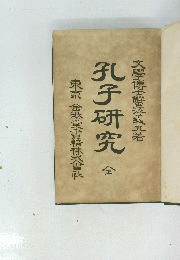 文學博士蟹江義丸著
孔子研究
全
東京 金港堂書籍株式會社